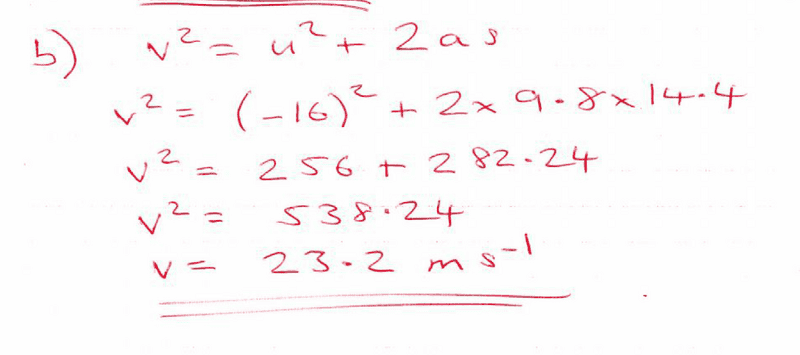 b) v² = u² + 2as
v² = (-16)² + 2x 9.8x 14.4
v² = 256 + 282.24
v² = 538.24
v = 23.2 ms⁻¹